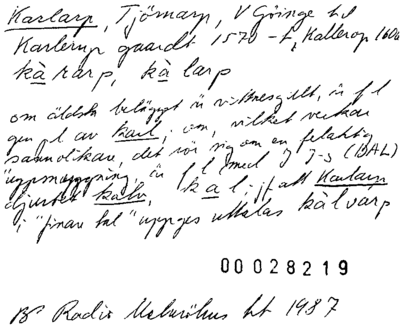 Karlarp, Tjörnarp, V Göinge hd
Karlerup gaardt 1570 - t, Kallerop 160
kàrarp, kàlarp
om äldsta belägget är vittnesgillt, är f l
gen pl av karl; om, vilket verkar
sannolikare, det rör sig om en felaktig
är f l (med J-s (BAL)
djurbet kalv, kal; jf att Karlarp
i "finare tal" uppges uttalas kàlvarp
00028219
Bs Radio Malmöhus ht 1987